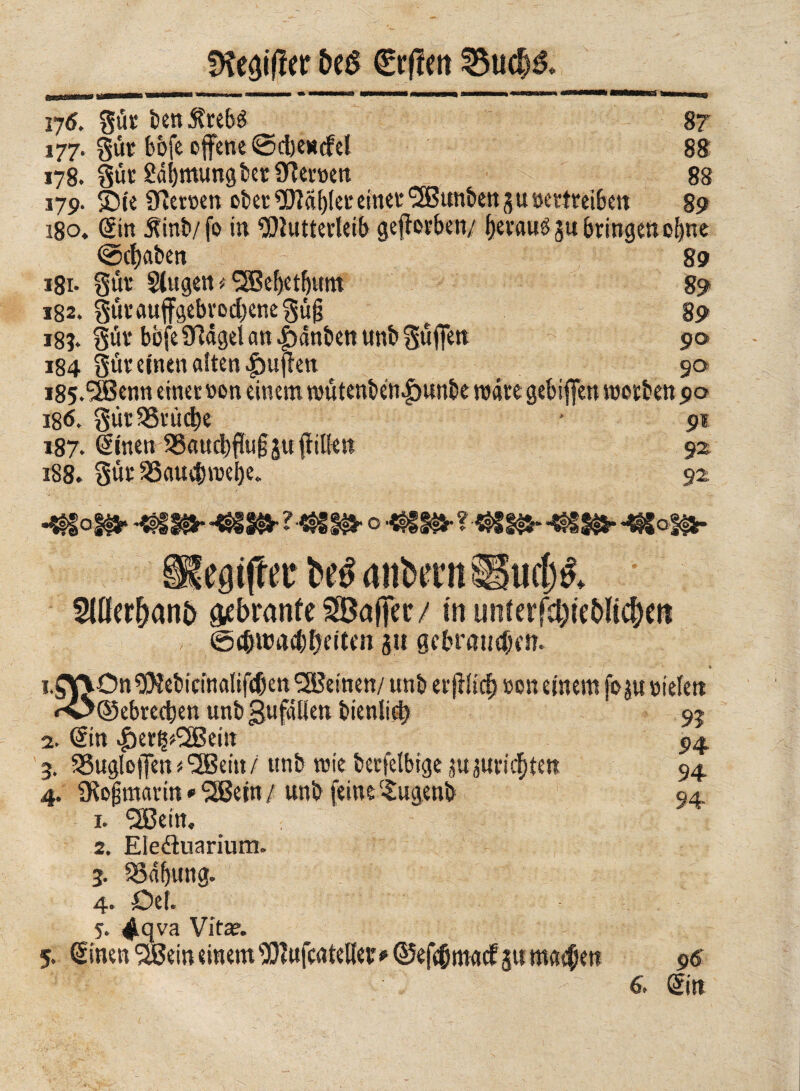 Register des Ersten Buchs.
176. Für den Krebs 87
177. Für böse offene Schenckel 88
178. Für Lähmung der Nerven 88
179. Die Nerven oder Mähler einer Wunden zu vertreiben 89
180. Ein Kind/ so in Mutterleib gestorben/ heraus zu bringen ohne
Schaden 89
181. Für Augen-Wehethum 89
182. Für auffgebrochene Füß 89
183. Für böse Nägel an Händen und Füssen 90
184 Für einen alten Husten 90
185. Wenn einer von einem wütenden Hunde wäre gebissen worden 90
186. Für Brüche 91
187. Einen Bauchfluß zu stillen 92
188. Für Bauchwehe. 92
Register des andern Buchs.
Allerhand gebrante Wasser/ in unterschiedlichen
Schwachheiten zu gebrauchen.
1. Von Medicinalischen Weinen/ und erstlich von einem so zu vielen
Gebrechen und Zufällen dienlich 93
2. Ein Hertz-Wein 94
3. Buglossen-Wein/ und wie derselbige zu zurichten 94
4. Roßmarin-Wein/ und seine Tugend 94
1. Wein.
2. Electuarium.
3. Bähung.
4. Oel.
5. Aqva Vitæ.
5. Einen Wein einem Muscateller-Geschmack zu machen 96
6. Ein